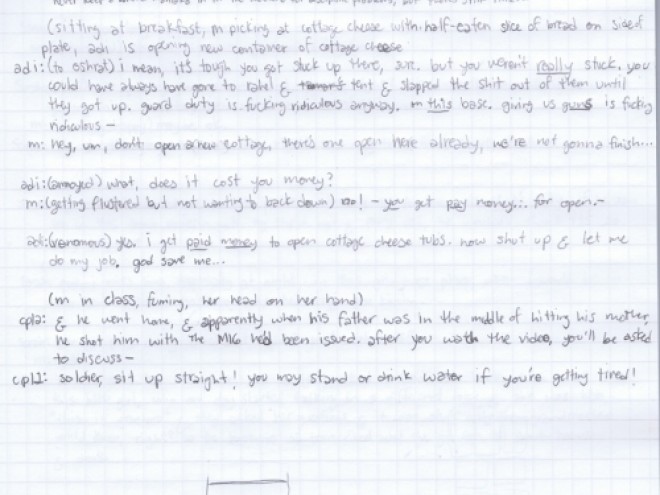 (sitting at breakfast, m picking at cottage cheese with half-eaten slice of bread on side of
plate, adi is opening new container of cottage cheese
adi: (to oshrat) i mean, it's tough you got stuck up there, sure. but you weren't really stuck. you
could have always have gone to rahel & tent & slapped the shit out of them until
they got up. guard duty is fucking ridiculous anyway. on this base. giving us guns is fucking
ridiculous –
m: hey, um, don't open a new cottage, there's one open here already, we're not gonna finish...
adi: (annoyed) what, does it cost you money?
m: (getting flustered but not wanting to back down) no! – you get pay money... for open. –
adi: (venomous) yes. i get paid money to open cottage cheese tubs. now shut up & let me
do my job. god save me...
(m in class, fuming, her head on her hand)
cpl2: & he went home, & apparently when his father was in the middle of hitting his mother,
he shot him with the M16 he'd been issued. after you watch the video, you'll be asked
to discuss –
cpl1: soldier, sit up straight! you may stand or drink water if you're getting tired!